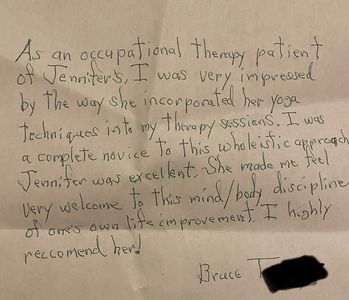 As an occupational therapy patient
of Jennifer's, I was very impressed
by the way she incorporated her yoga
techniques into my therapy sessions. I was
a complete novice to this wholeistic approach
Jennifer was excellent. She made me feel
very welcome to this mind/body discipline
of one's own life improvement. I highly
reccomend her!
Bruce T